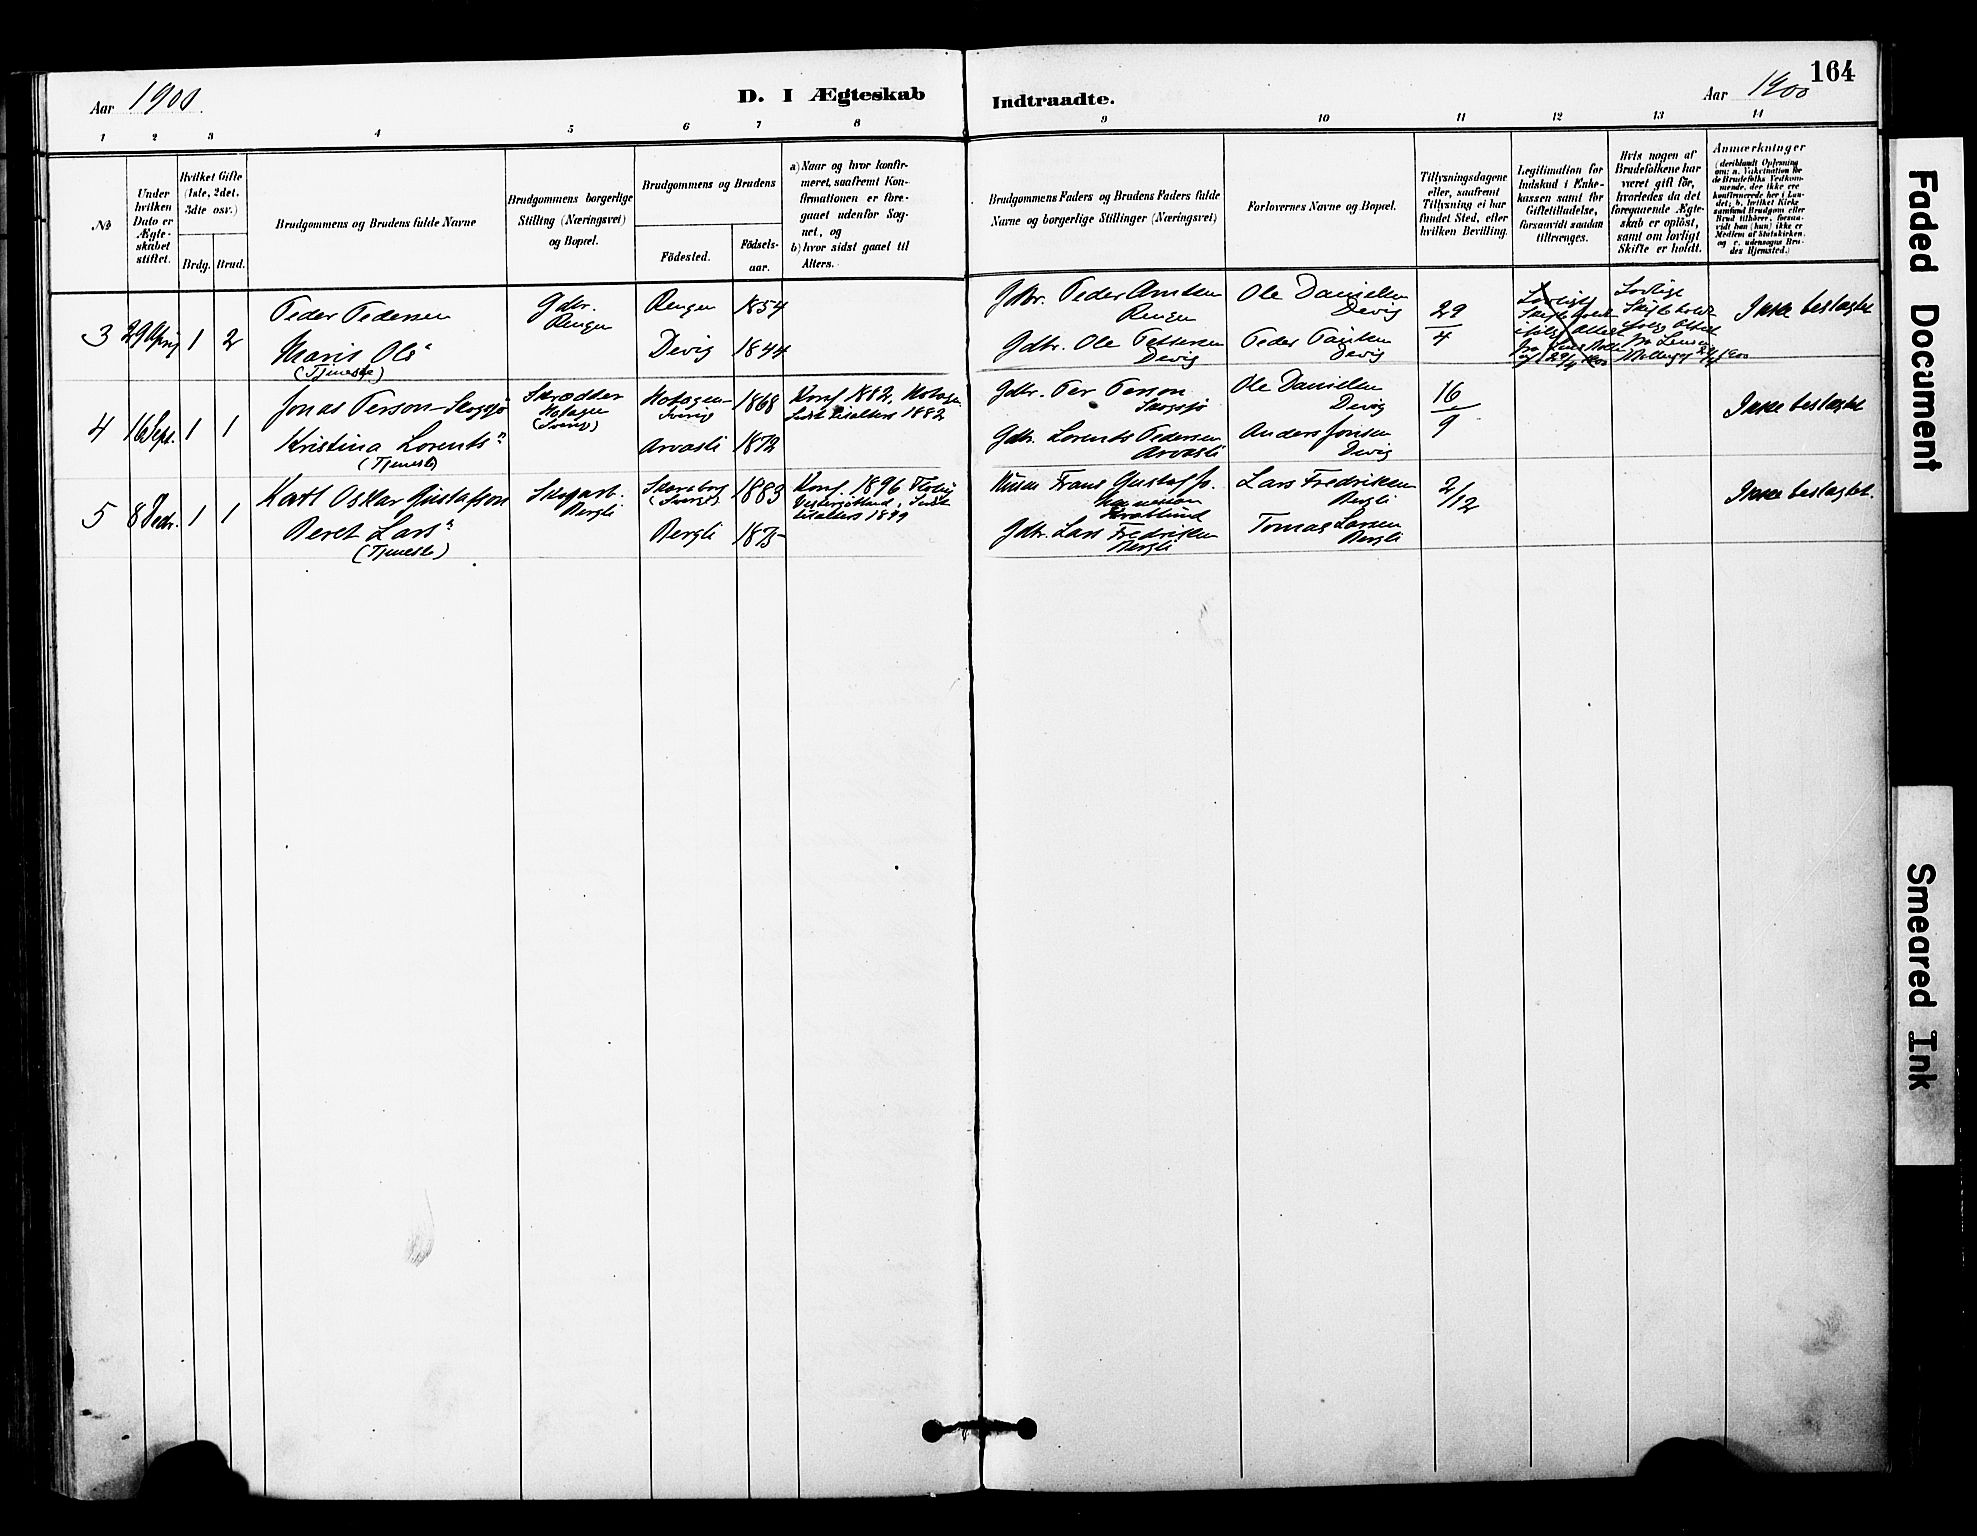 164
Aar 1900.
D. I Ægteskab
Indtraadte.
Aar 1900
1 2 3 4 5 6 7 8 9 10 11 12 13 14
№
Under hvilken Dato er Ægte-skabet stiftet.
Hvilket Gifte (1ste, 2det, 3dte osv.)
Brdg. Brud.
Brudgommens og Brudens fulde Navne
Brudgommens borgerlige Stilling (Næringsvei) og Bopæl.
Brudgommens og Brudens
Fødested.
Fødsels-aar.
a) Naar og hvor konfir-
meret, saafremt Kon-
firmationen er fore-
gaaet udenfor Sog-
net, og
b) hvor sidst gaaet til
Alters.
Brudgommens Faders og Brudens Faders fulde
Navne og borgerlige Stillinger (Næringsvei)
Forlovernes Navne og Bopæl.
Tillysningsdagene
eller, saafremt
Tillysning ei har
fundet Sted, efter
hvilken Bevilling.
Legitimation for
Indskud i Enke-
kassen samt for
Giftetilladelse,
forsaavidt saadan
tiltrænges.
Hvis nogen af
Brudefolkene har
været gift før,
hvorledes da det
foregaaende Ægte-
skab er opløst,
samt om lovligt
Skifte er holdt.
Anmærkninger
(deriblandt Oplysning
om: a. Vakcination for
de Brudefolks Vedkom-
mende, der ikke ere
konfirmerede her i Lan-
det; b. hvilket Kirke-
samfund Brudgom eller
Brud tilhører, forsaa-
vidt han (hun) ikke er
Medlem af Statskirken,
og c. udensogns Bru-
des Hjemsted.)
3 29 April 1 2 Peder Pedersen Gdbr. Rengen Rengen 1854 Gdbr. Peder Arntsen Rengen Ole Danielsen Devig 29/4 Ikke beslægtet
Maris Ols" (Tjeneste) Devig 1844 Gdbr. Ole Pettersen Devig Peder Devig
4 16 Sept. 1 1 Jonas Person-Skogsjö Skrædder Hotagen (Sverig) Hotagen Sverig 1868 Konf. 1882, Hotagen. Sidst tilalters 1882 Gdbr. Per Person Skogsjö Ole Danielsen Devig 16/9 Ikke beslægtet
Kristina Lorents" (Tjeneste) Arvasli 1872 Gdbr. Lorents Pedersen Arvasli Anders Jonsen Devig
5 8 Decbr. 1 1 Karl Oskar Gustafsson Skogarb. Bergli Skaraborg (Sverige) 1883 Konf. 1896 Sidst tilalters 1899 Frans Gustaf Lars Fredriksen Bergli 2/12 Ikke beslægtet.
Beret Lars" (Tjeneste) Bergli 1875 Gdbr. Lars Fredriksen Bergli Tomas Larsen Bergli
Faded Document
Smeared Ink